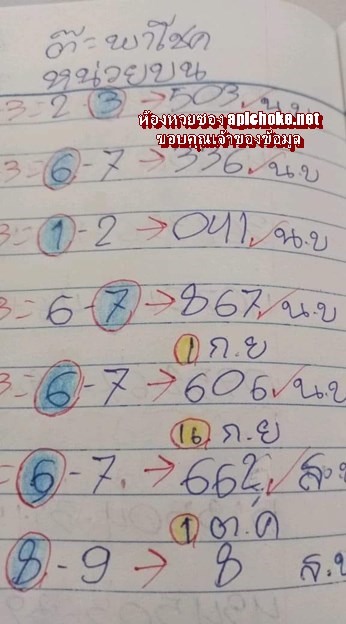 ต๊ะพาโชค
หน่วยบน
3=2-3→503✓น.บ
ห้องหวยซอง apichoke.net
ขอบคุณเจ้าของข้อมูล
3=6-7→336✓น.บ
3=1-2→041✓น.บ
3=6-7→867✓น.บ
1 ก.ย
3=6-7→606✓น.บ
16 ก.ย
=6-7.→662✓
1 ต.ค
8-9→8